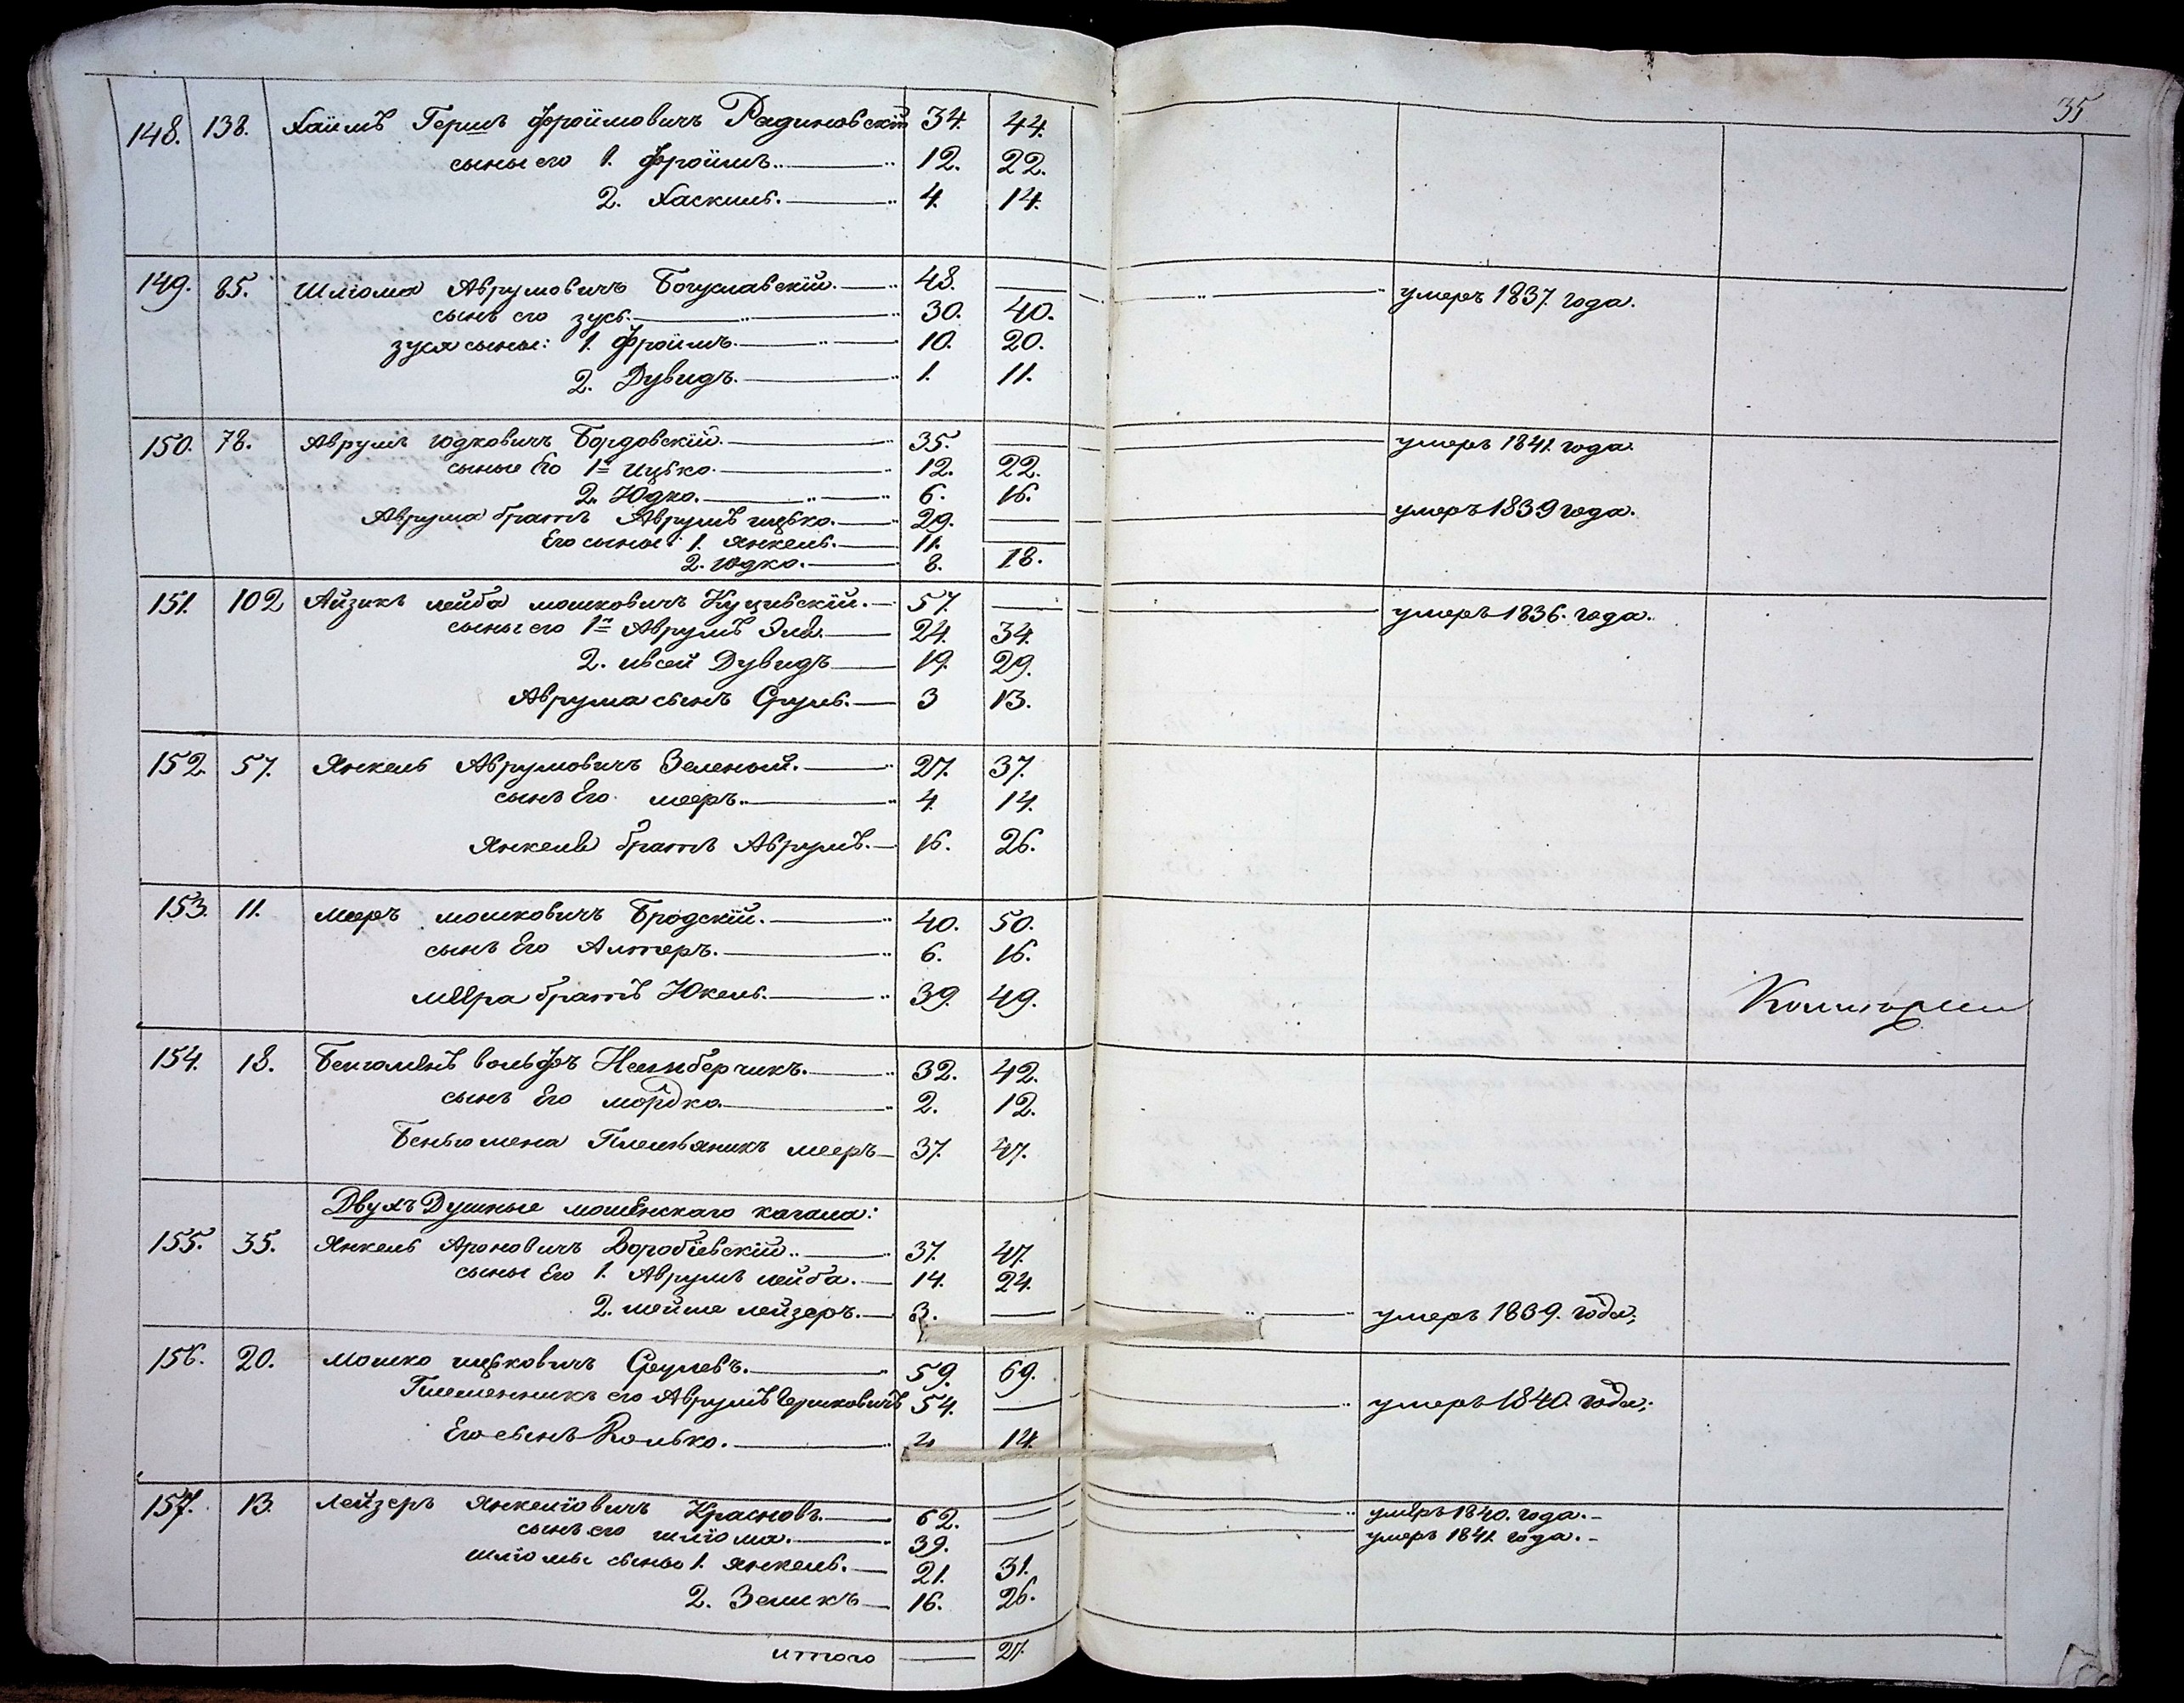 35
148. 138. Хаимъ Гершъ Фроимовичъ Радиновскій 34. 44.
сыны его 1. Фроимъ. 12. 22.
2. Хаскиль. 4. 14.
149. 85. Шліома Аврумовичъ Богуславскій. 48. — умеръ 1837. года.
сынъ его зусь. 30. 40.
зуся сыны: 1. Фроимъ. 10. 20.
2. Дувидъ. 1. 11.
150. 78. Аврумъ юдковичъ Бордовскій. 35. — умеръ 1841. года.
сыны Его 1й Ицько. 12. 22.
2. Юдко. 6. 16.
Аврума братъ Аврумъ ицько. 29. — умеръ 1839 года.
Его сыны: 1. янкель. 11. —
2. юдко. 8. 18.
151. 102 Айзикъ лейба мошковичъ 57. — умеръ 1836. года.
сыны его 1й Аврумъ Эля. 24. 34.
2. ивсей Дувидъ 19. 29.
Аврума сынъ Сруль. 3 13.
152. 57. Янкель Аврумовичъ Зеленой. 27. 37.
сынъ Его мееръ. 4. 14.
Янкеля братъ Аврумъ. 16. 26.
153. 11. мееръ мошковичъ Бродскій. 40. 50.
сынъ Его Алтеръ. 6. 16.
меера братъ Юкель. 39. 49.
154. 18. вольфъ 32. 42.
сынъ Его мордко. 2. 12.
Беньомена Племьяникъ мееръ 37. 47.
Двухъ Душные кагала:
155. 35. Янкель Ароновичъ Воробіевскій. 37. 47.
сыны Его 1. Аврумъ лейба. 14. 24.
2. лейзеръ. 3. — умеръ 1839. года;
156. 20. мошко ицьковичъ Срулевъ. 59. 69.
Племенникъ его Аврумъ 54. — умеръ 1840 года;
Его сынъ Волько. 4 14.
157. 13. Лейзеръ Янкеліовичъ Красновъ. 62. — умеръ 1840. года. -
сынъ его шліома. 39. — умеръ 1841. года. -
шліомы сыны 1. янкель. 21. 31.
2. Зеликъ 16. 26.
итого — 27.